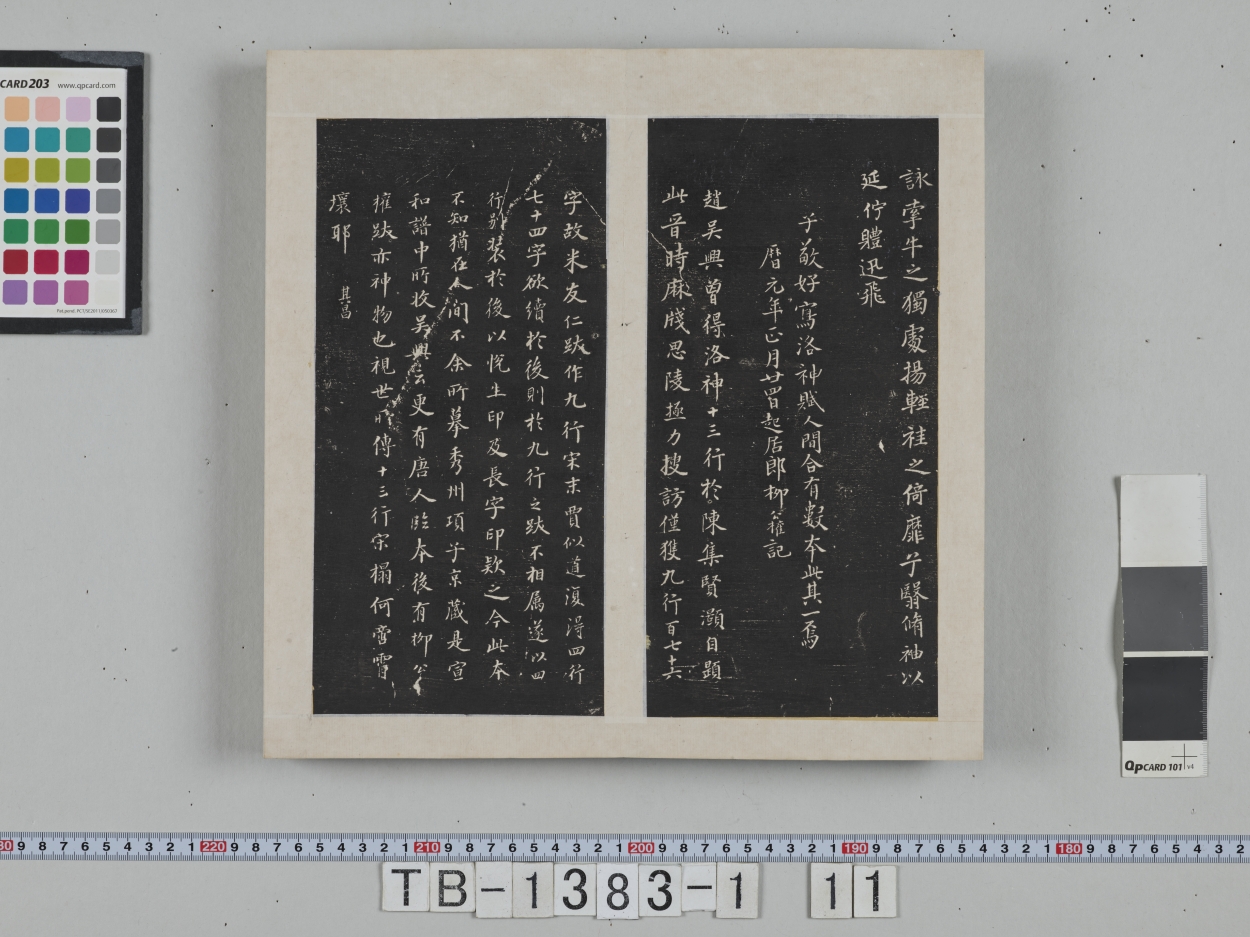 詠牽牛之獨處揚輕袿之倚靡兮翳脩袖以
延佇體迅飛
子敬好寫洛神賦人間合有數本此其一焉
曆元年正月廿四日起居郎柳公權記
趙吳興曾得洛神十三行於陳集賢灝自題
此晉時麻牋思陵極力搜訪僅獲九行百七十六
字故米友仁跋作九行宋末賈似道復得四行
七十四字欲續於後則於九行之跋不相屬遂以四
行別裝於後以悅生印及長字印款之今此本
不知猶在人間不余所摹秀州項子京藏是宣
和譜中所收吳興云更有唐人臨本後有柳公
權跋亦神物也視世所傳十三行宋榻何啻霄
壤耶 其昌
CARD203 www.qpcard.com
QpCARD 101 v4
30 9 8 7 6 5 4 3 2 1 220 9 8 7 6 5 4 3 2 1 210 9 8 7 6 5 4 3 2 1 200 9 8 7 6 5 4 3 2 1 190 9 8 7 6 5 4 3 2 1 180 9 8 7 6 5 4 3 2
TB-1383-1 11